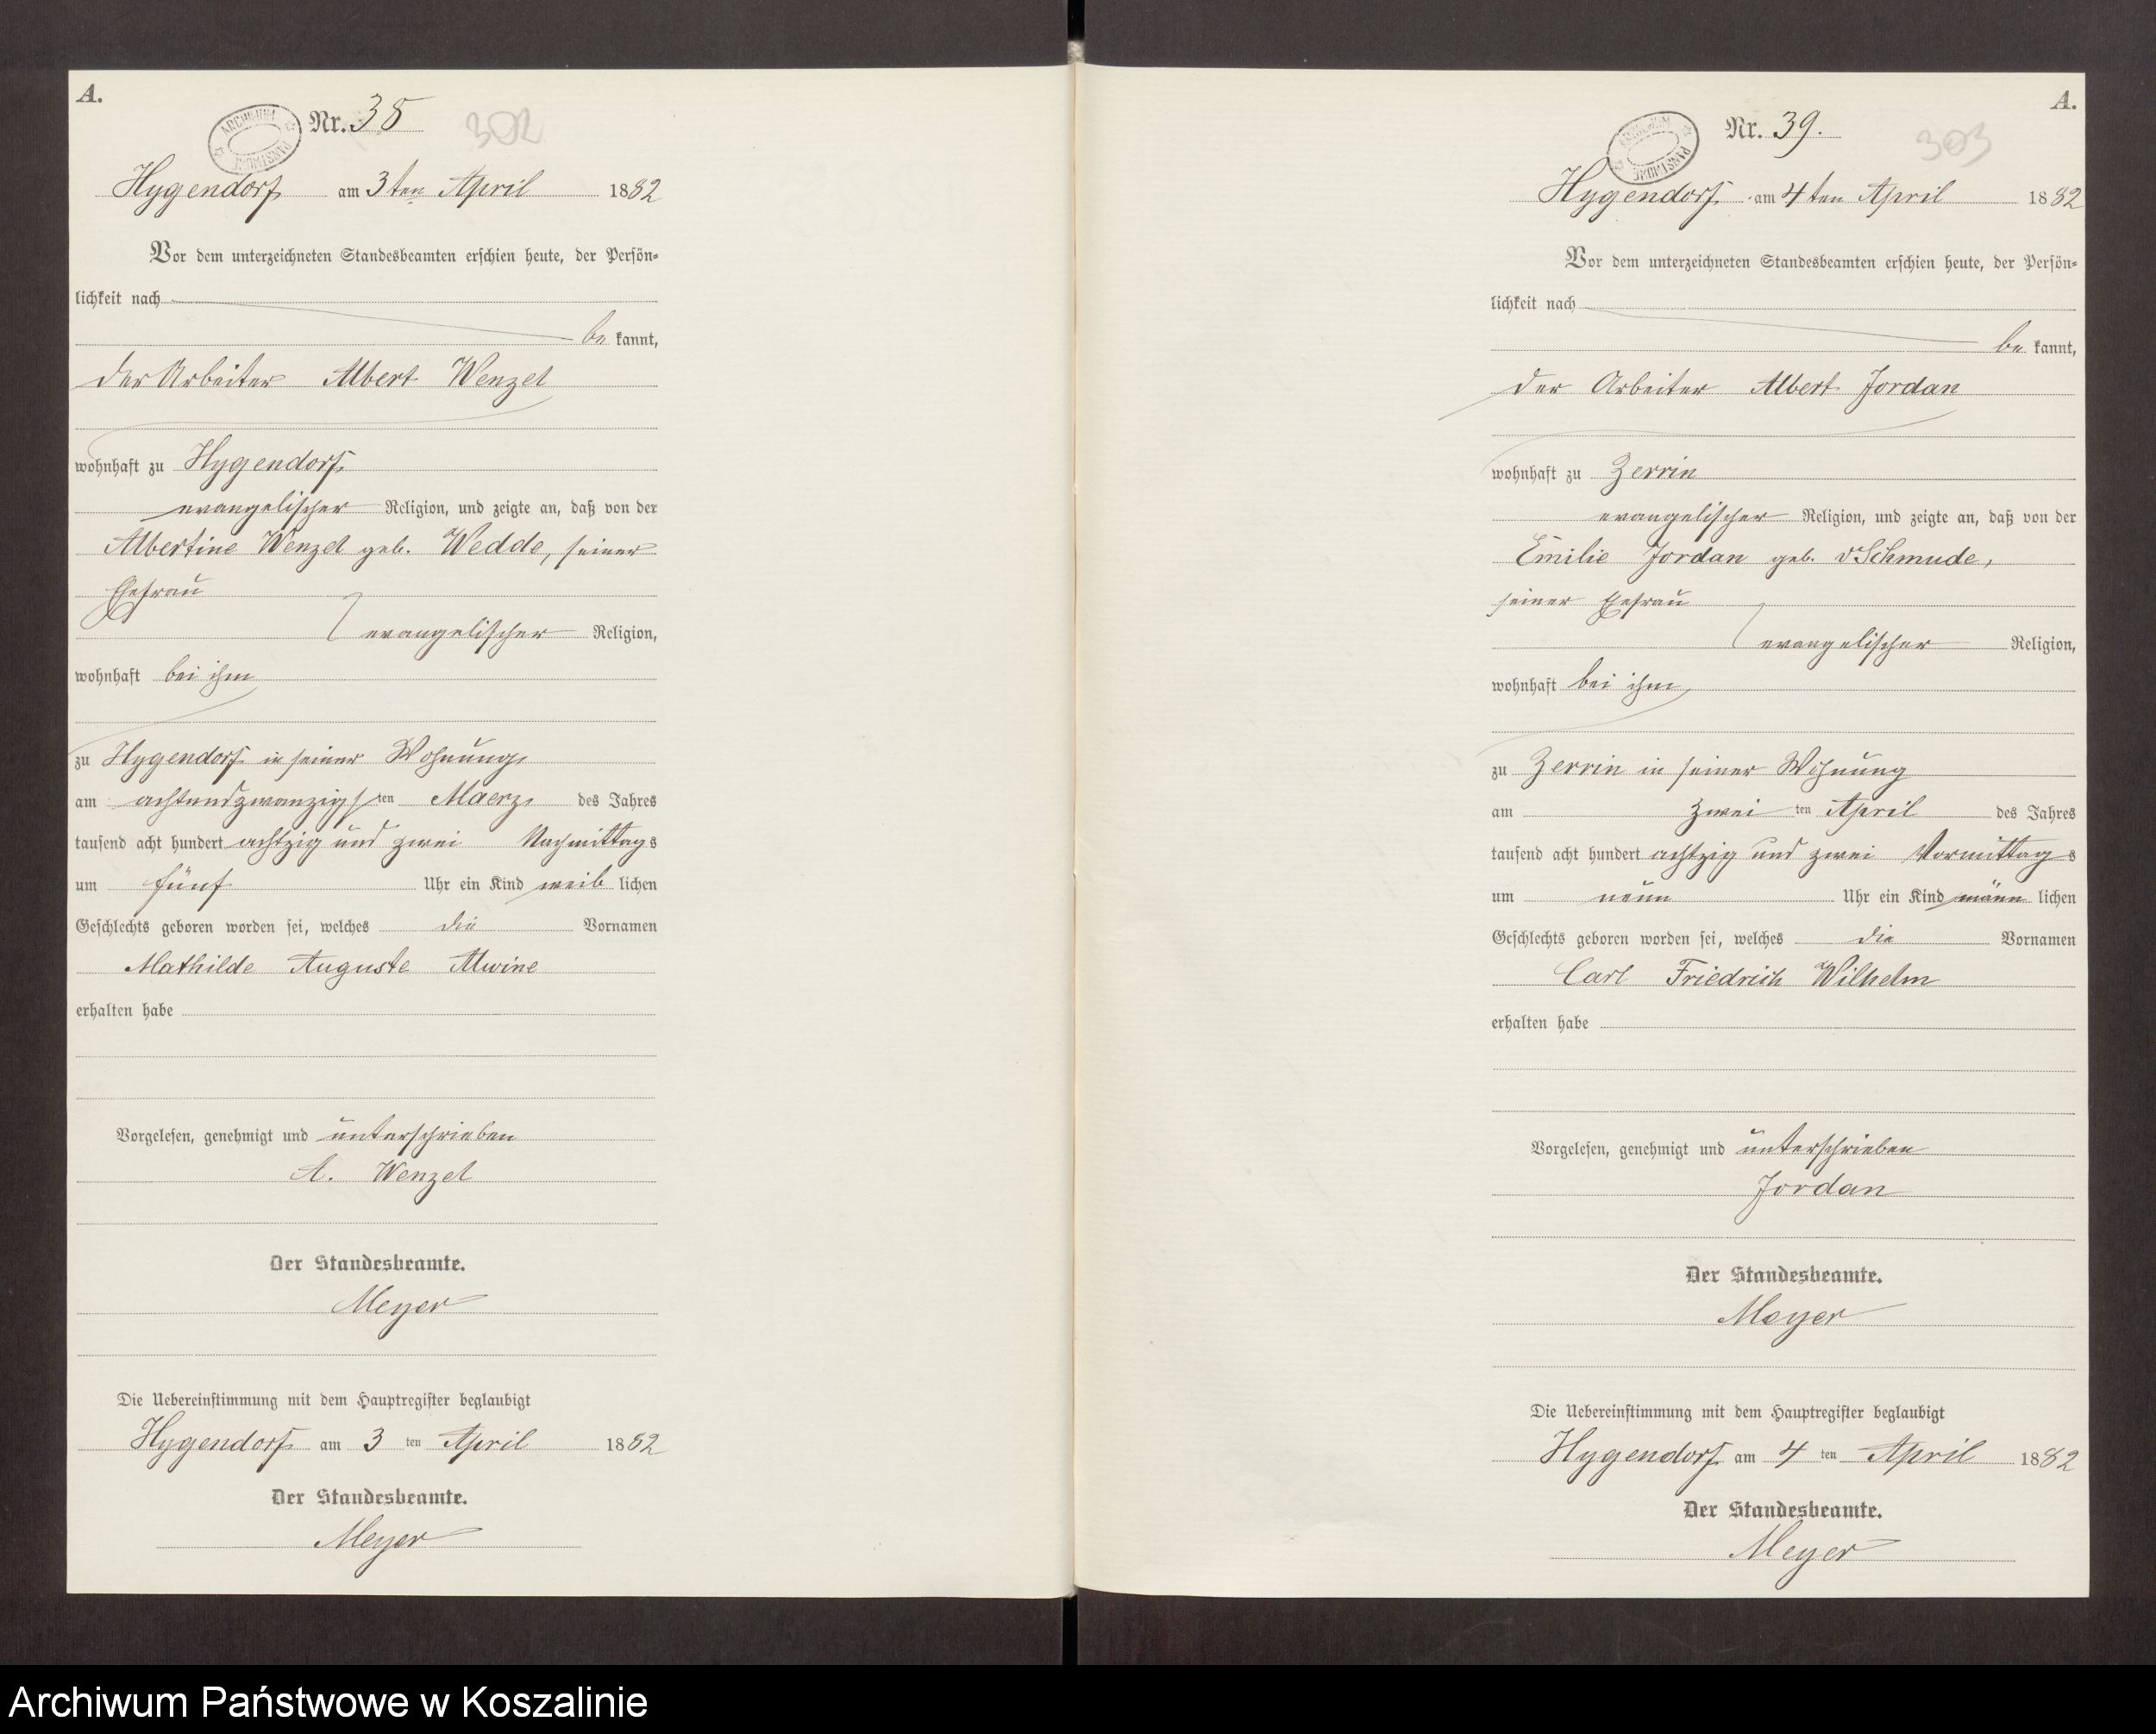 A.
ARCHIWUM PAŃSTWOWE
Nr. 38
302
Hygendorf am 3ten April 1882
Vor dem unterzeichneten Standesbeamten erschien heute, der Persön-
lichkeit nach
be kannt,
der Arbeiter Albert Wenzel
wohnhaft zu Hygendorf
evangelischer Religion, und zeigte an, daß von der
Albertine Wenzel geb. Wedde, seiner
Ehefrau
evangelischer Religion,
wohnhaft bei ihm
zu Hygendorf in seiner Wohnung
am achtundzwanzigs ten Maerz des Jahres
tausend acht hundert achtzig und zwei Nachmittags
um fünf Uhr ein Kind weib lichen
Geschlechts geboren worden sei, welches die Vornamen
Mathilde Auguste Alwine
erhalten habe
Vorgelesen, genehmigt und unterschrieben
A. Wenzel
Der Standesbeamte.
Meyer
Die Uebereinstimmung mit dem Hauptregister beglaubigt
Hygendorf am 3 ten April 1882
Der Standesbeamte.
Meyer
A.
ARCHIWUM PAŃSTWOWE
Nr. 39.
303
Hygendorf am 4ten April 1882
Vor dem unterzeichneten Standesbeamten erschien heute, der Persön-
lichkeit nach
be kannt,
der Arbeiter Albert Jordan
wohnhaft zu Zerrin
evangelischer Religion, und zeigte an, daß von der
Emilie Jordan geb. v Schmude,
seiner Ehefrau
evangelischer Religion,
wohnhaft bei ihm
zu Zerrin in seiner Wohnung
am zwei ten April des Jahres
tausend acht hundert achtzig und zwei Vormittags
um neun Uhr ein Kind männ lichen
Geschlechts geboren worden sei, welches die Vornamen
Carl Friedrich Wilhelm
erhalten habe
Vorgelesen, genehmigt und unterschrieben
Jordan
Der Standesbeamte.
Meyer
Die Uebereinstimmung mit dem Hauptregister beglaubigt
Hygendorf am 4 ten April 1882
Der Standesbeamte.
Meyer
Archiwum Państwowe w Koszalinie